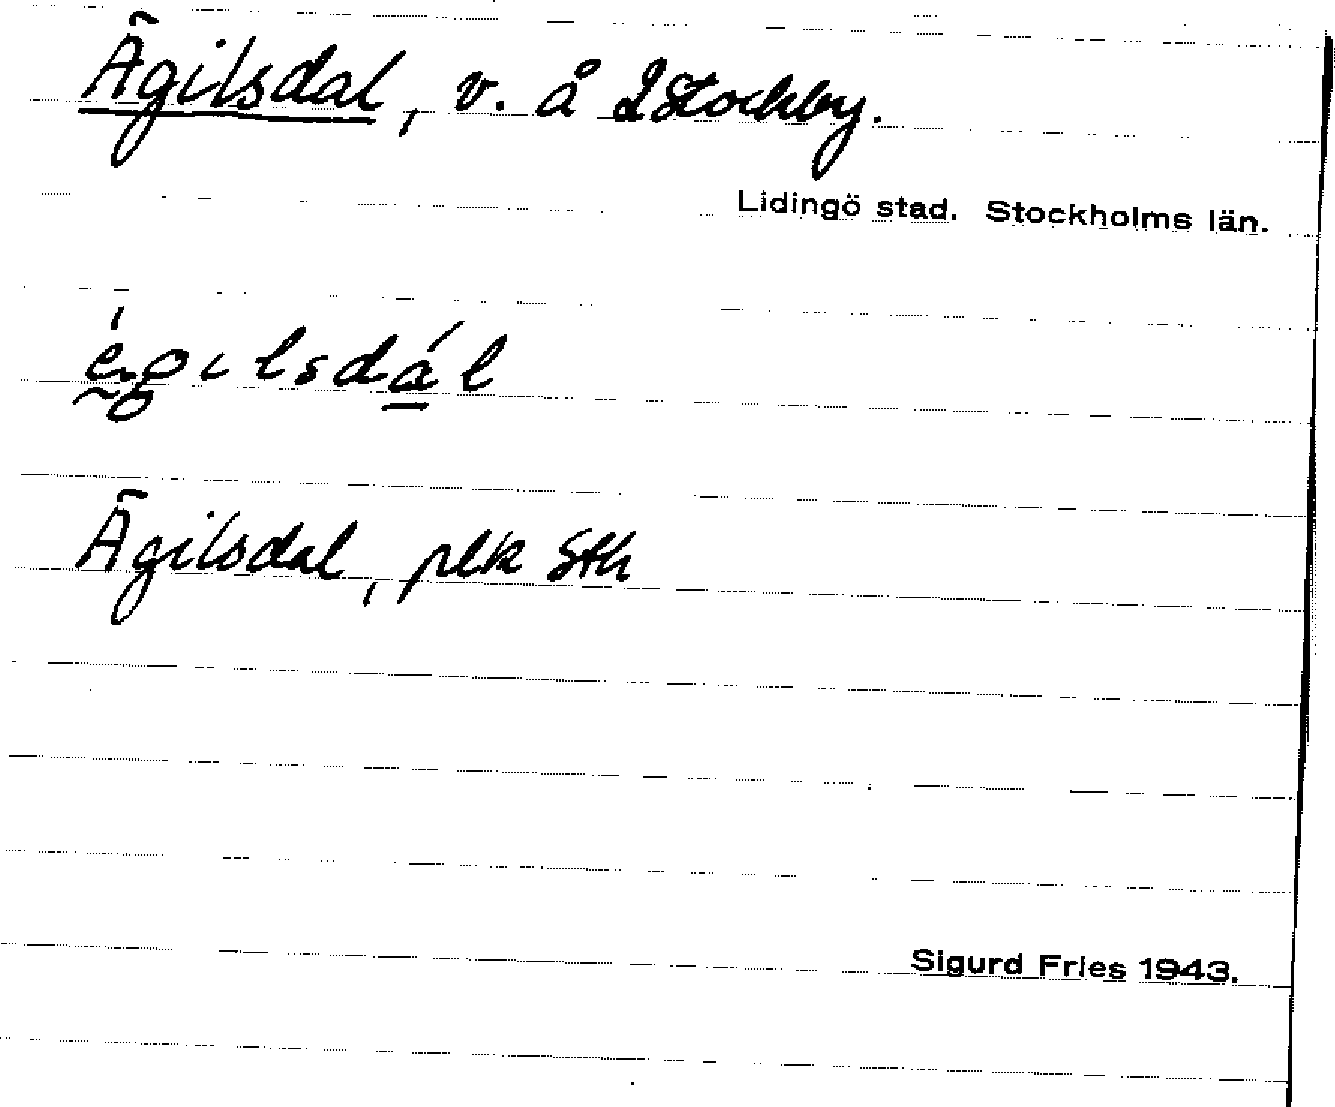 Ägilsdal, v. å 2 Stockby.
Lidingö stad. Stockholms län.
égilsdál
Ägilsdal, plk Sth
Sigurd Fries 1943.